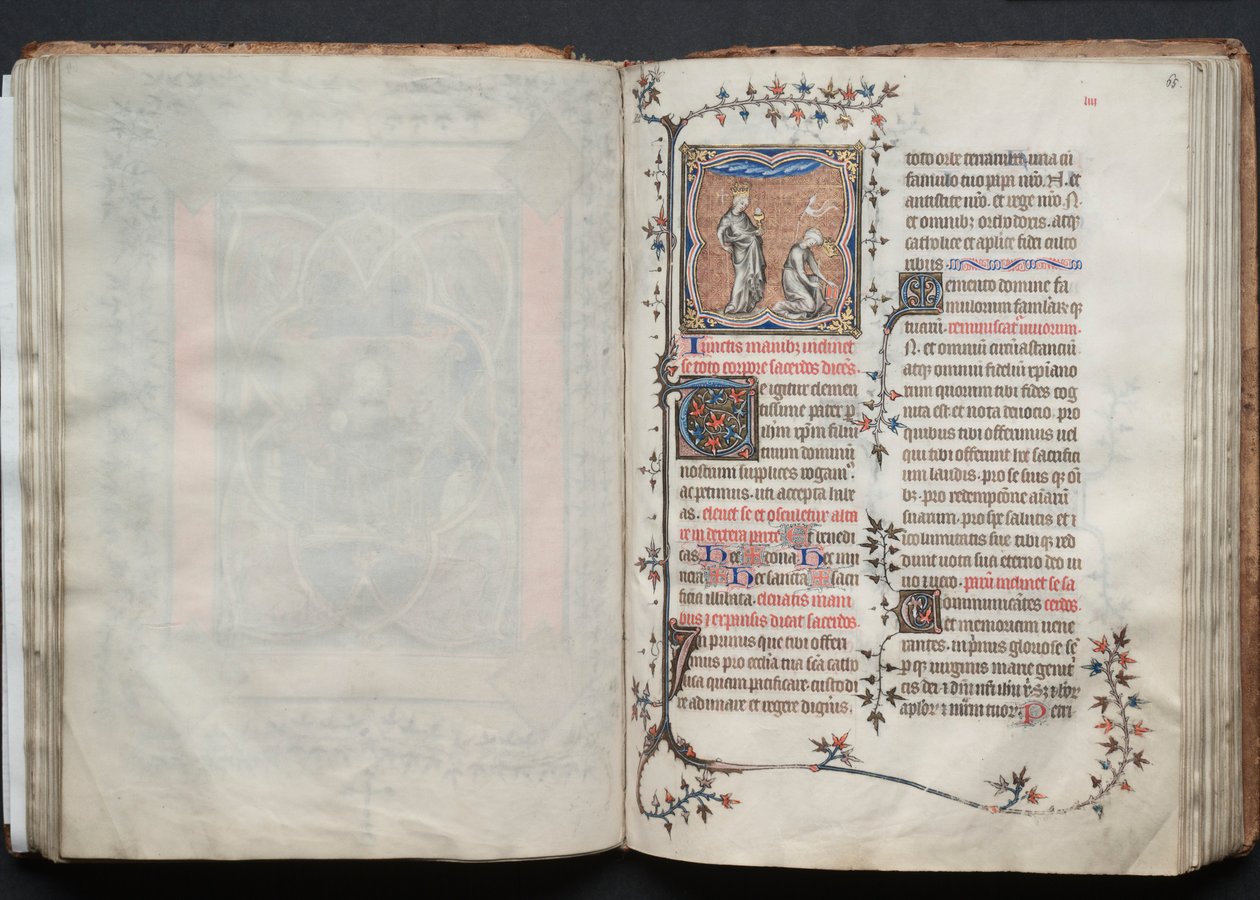 65.
iiij
Iunctis manibz inclinet
se toto corpore sacerdos dicens.
Te igitur clemen
tissime pater p
ihm xpm filiu
tuum dominu
nostrum supplices rogam9
ac petimus. uti accepta habe
as. eleuet se et osculetur alta
re in dextera parte Et benedi
cas Hec + dona Hec mu
nera + Hec sancta + sacri
ficia illibata. eleuatis mani
bus ⁊ expansis dicat sacerdos.
In primis que tibi offeri
mus pro ecclia tua sca catho
lica quam pacificare. custodi
re adunare et regere digneris.
toto orbe terrarum. una cu
famulo tuo papa nro. N. et
antistite nro. et rege nro N.
et omnibz orthodoxis. atqz
catholice et aplice fidei culto
ribus.
Memento domine fa
mulorum famularz qz
tuaru. reminiscat uiuorum.
N. et omniu circuastanciu.
atqz omniu fideliu xpiano
rum quorum tibi fides cog
nita est. et nota deuocio. pro
quibus tibi offerimus uel
qui tibi offerunt hoc sacrifici
um laudis. pro se suis qz oi
bz. pro redempcone aiaru
suarum. pro spe salutis et i
icolumitatis sue tibi qz red
dunt uota sua eterno deo ui
uo ⁊ uero. paru inclinet se sa
Communicantes cerdos.
et memoriam uene
rantes. in primis gloriose se
p qz uirginis marie genit
cis dei ⁊ dni nri ihu x. Sz ⁊ btor
aplor ⁊ mrm tuor. Petri